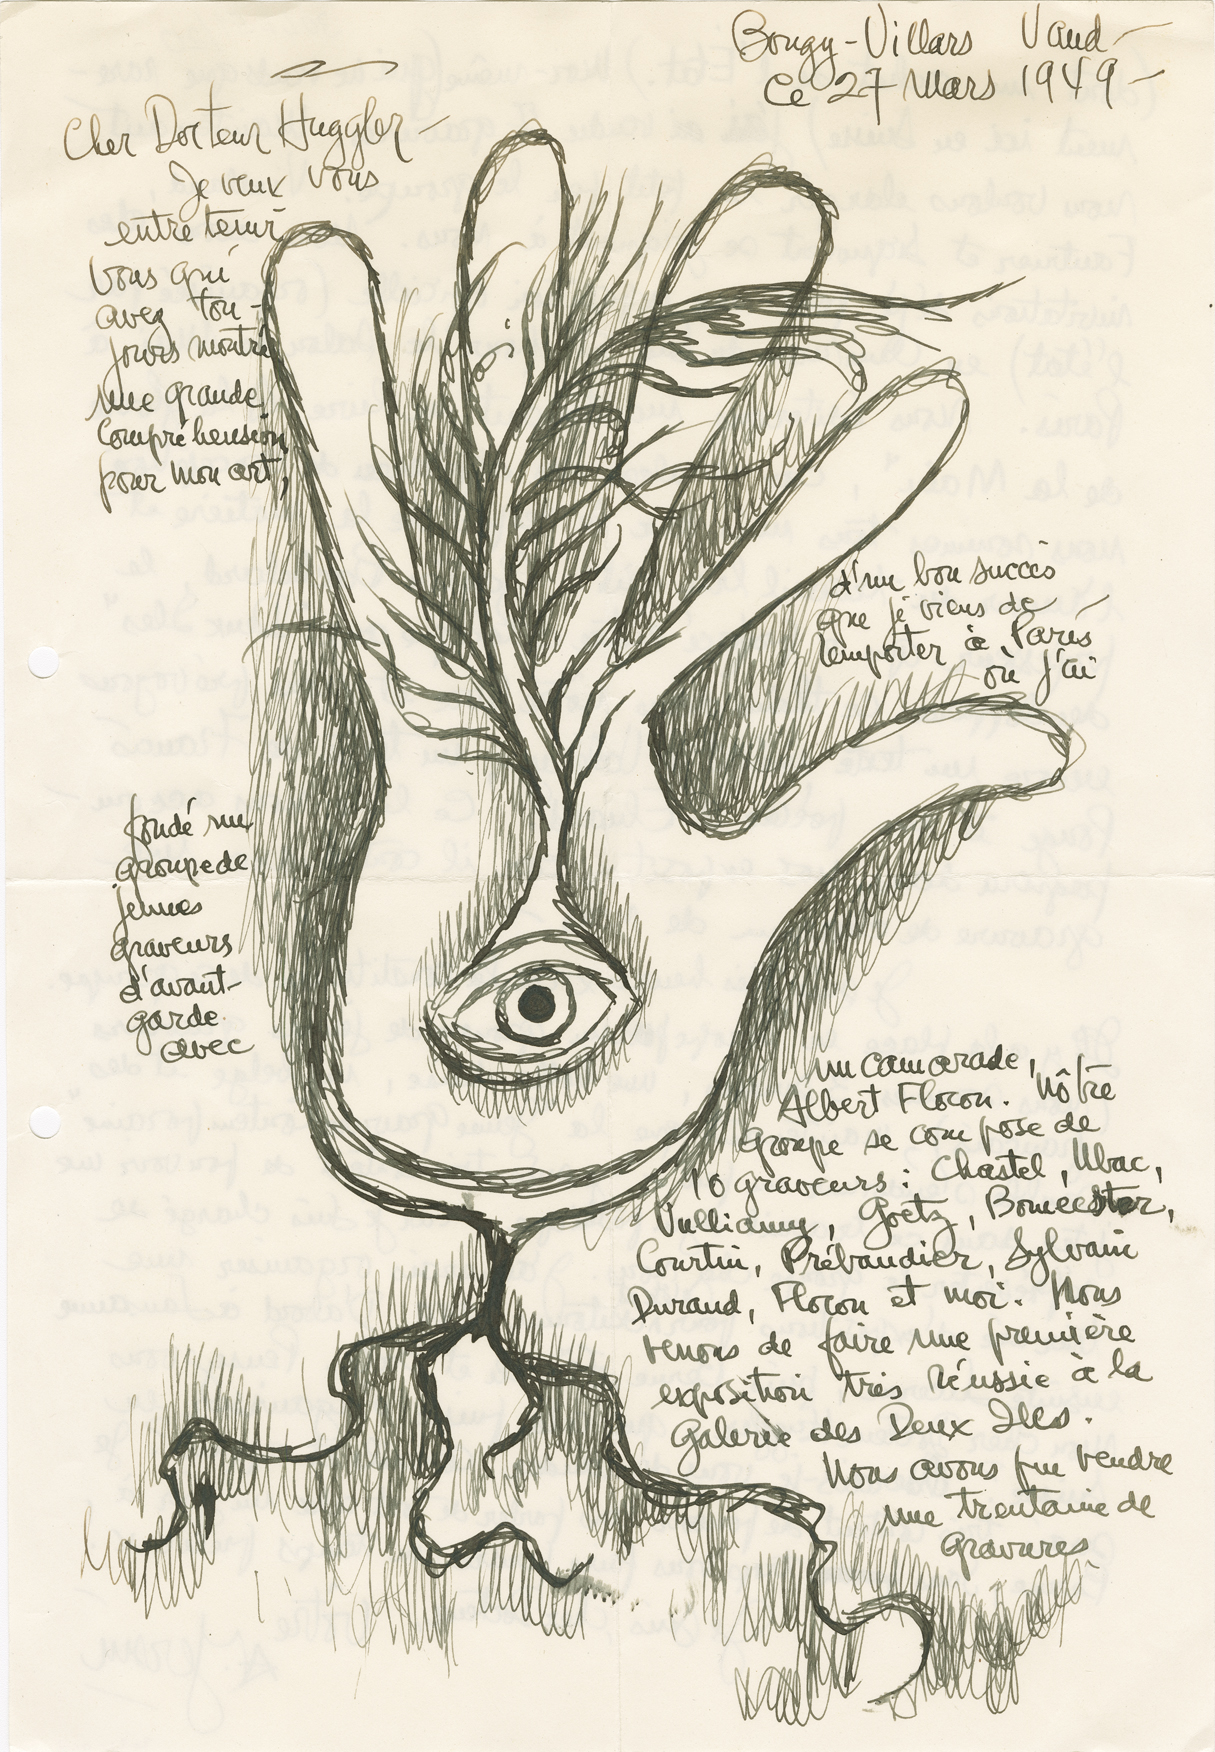 Bougy-Villars Vaud-
Ce 27 Mars 1949-
Cher Docteur Huggler-
Je veux vous
entretenir
vous qui
avez tou-
jours montré
une grande
compréhension
pour mon art,
d'un bon succès
que je viens de
remporter à Paris
où j'ai
fondé un
groupe de
jeunes
graveurs
d'avant-
garde
avec
un camarade,
Albert Flocon. Nôtre
groupe se compose de
10 graveurs: Chastel, Ubac,
Vulliamy, Goetz, Boumeester,
Courtin, Prébandier, Sylvain
Durand, Flocon et moi. Nous
venons de faire une première
exposition très réussie à la
Galerie des Deux Iles.
Nous avons pu vendre
une trentaine de
gravures.